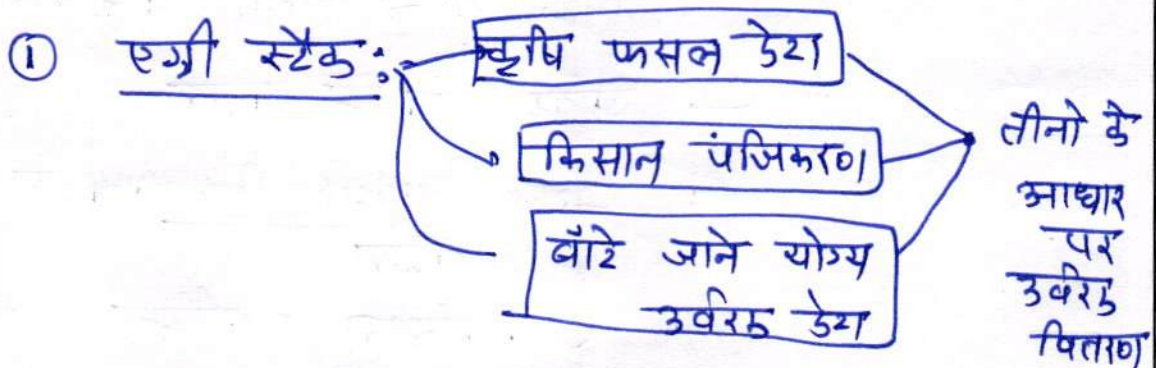 ① एग्री स्टैक:
कृषि फसल डेटा
किसान पंजिकरण
बाँटे जाने योग्य
उर्वरक डेटा
तीनो के
आधार
पर
उर्वरक
वितरण